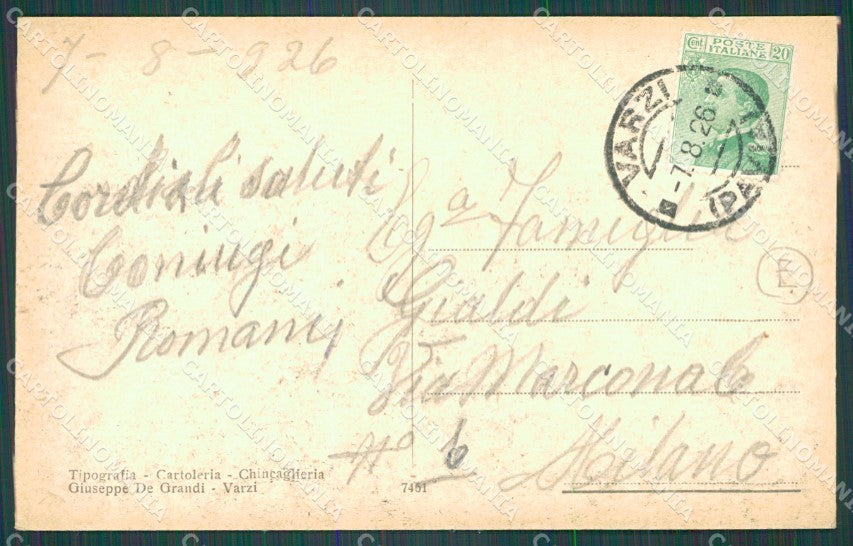 7-8-926
Cordiali saluti
Coniugi
Romani
Cent POSTE ITALIANE 20
VARZI (PAVIA)
-7.8.26
Famiglia
Gialdi
Via Marcona
No 6
Milano
E.
Tipografia - Cartoleria - Chincaglieria
Giuseppe De Grandi - Varzi
7451
CARTOLINOMANIA